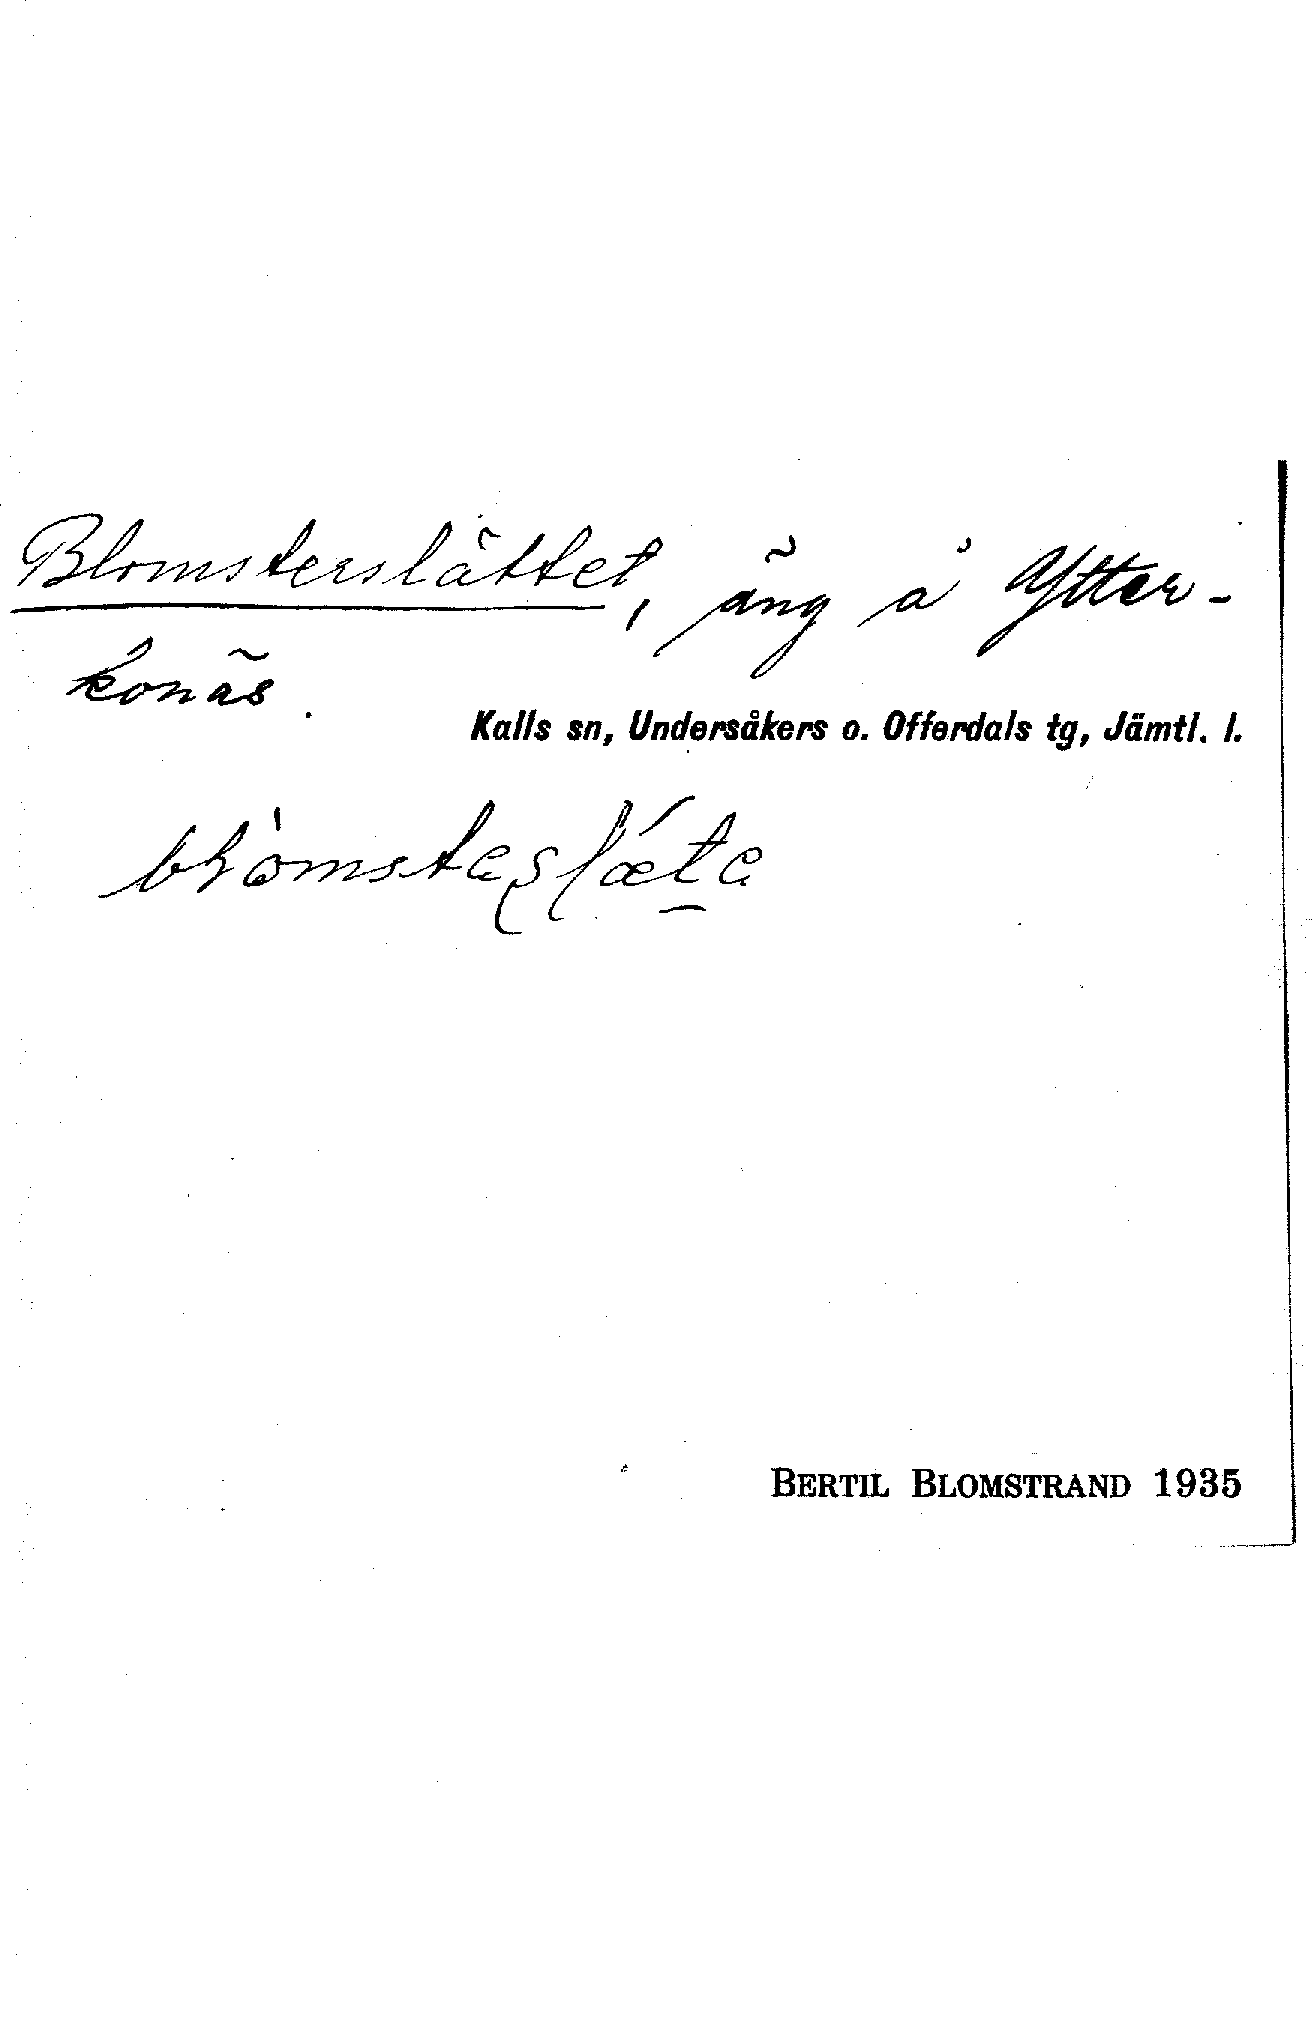 Blomsterslättet, äng å Ytter-
konäs.
Kalls sn, Undersåkers o. Offerdals tg, Jämtl. l.
BERTIL BLOMSTRAND 1935